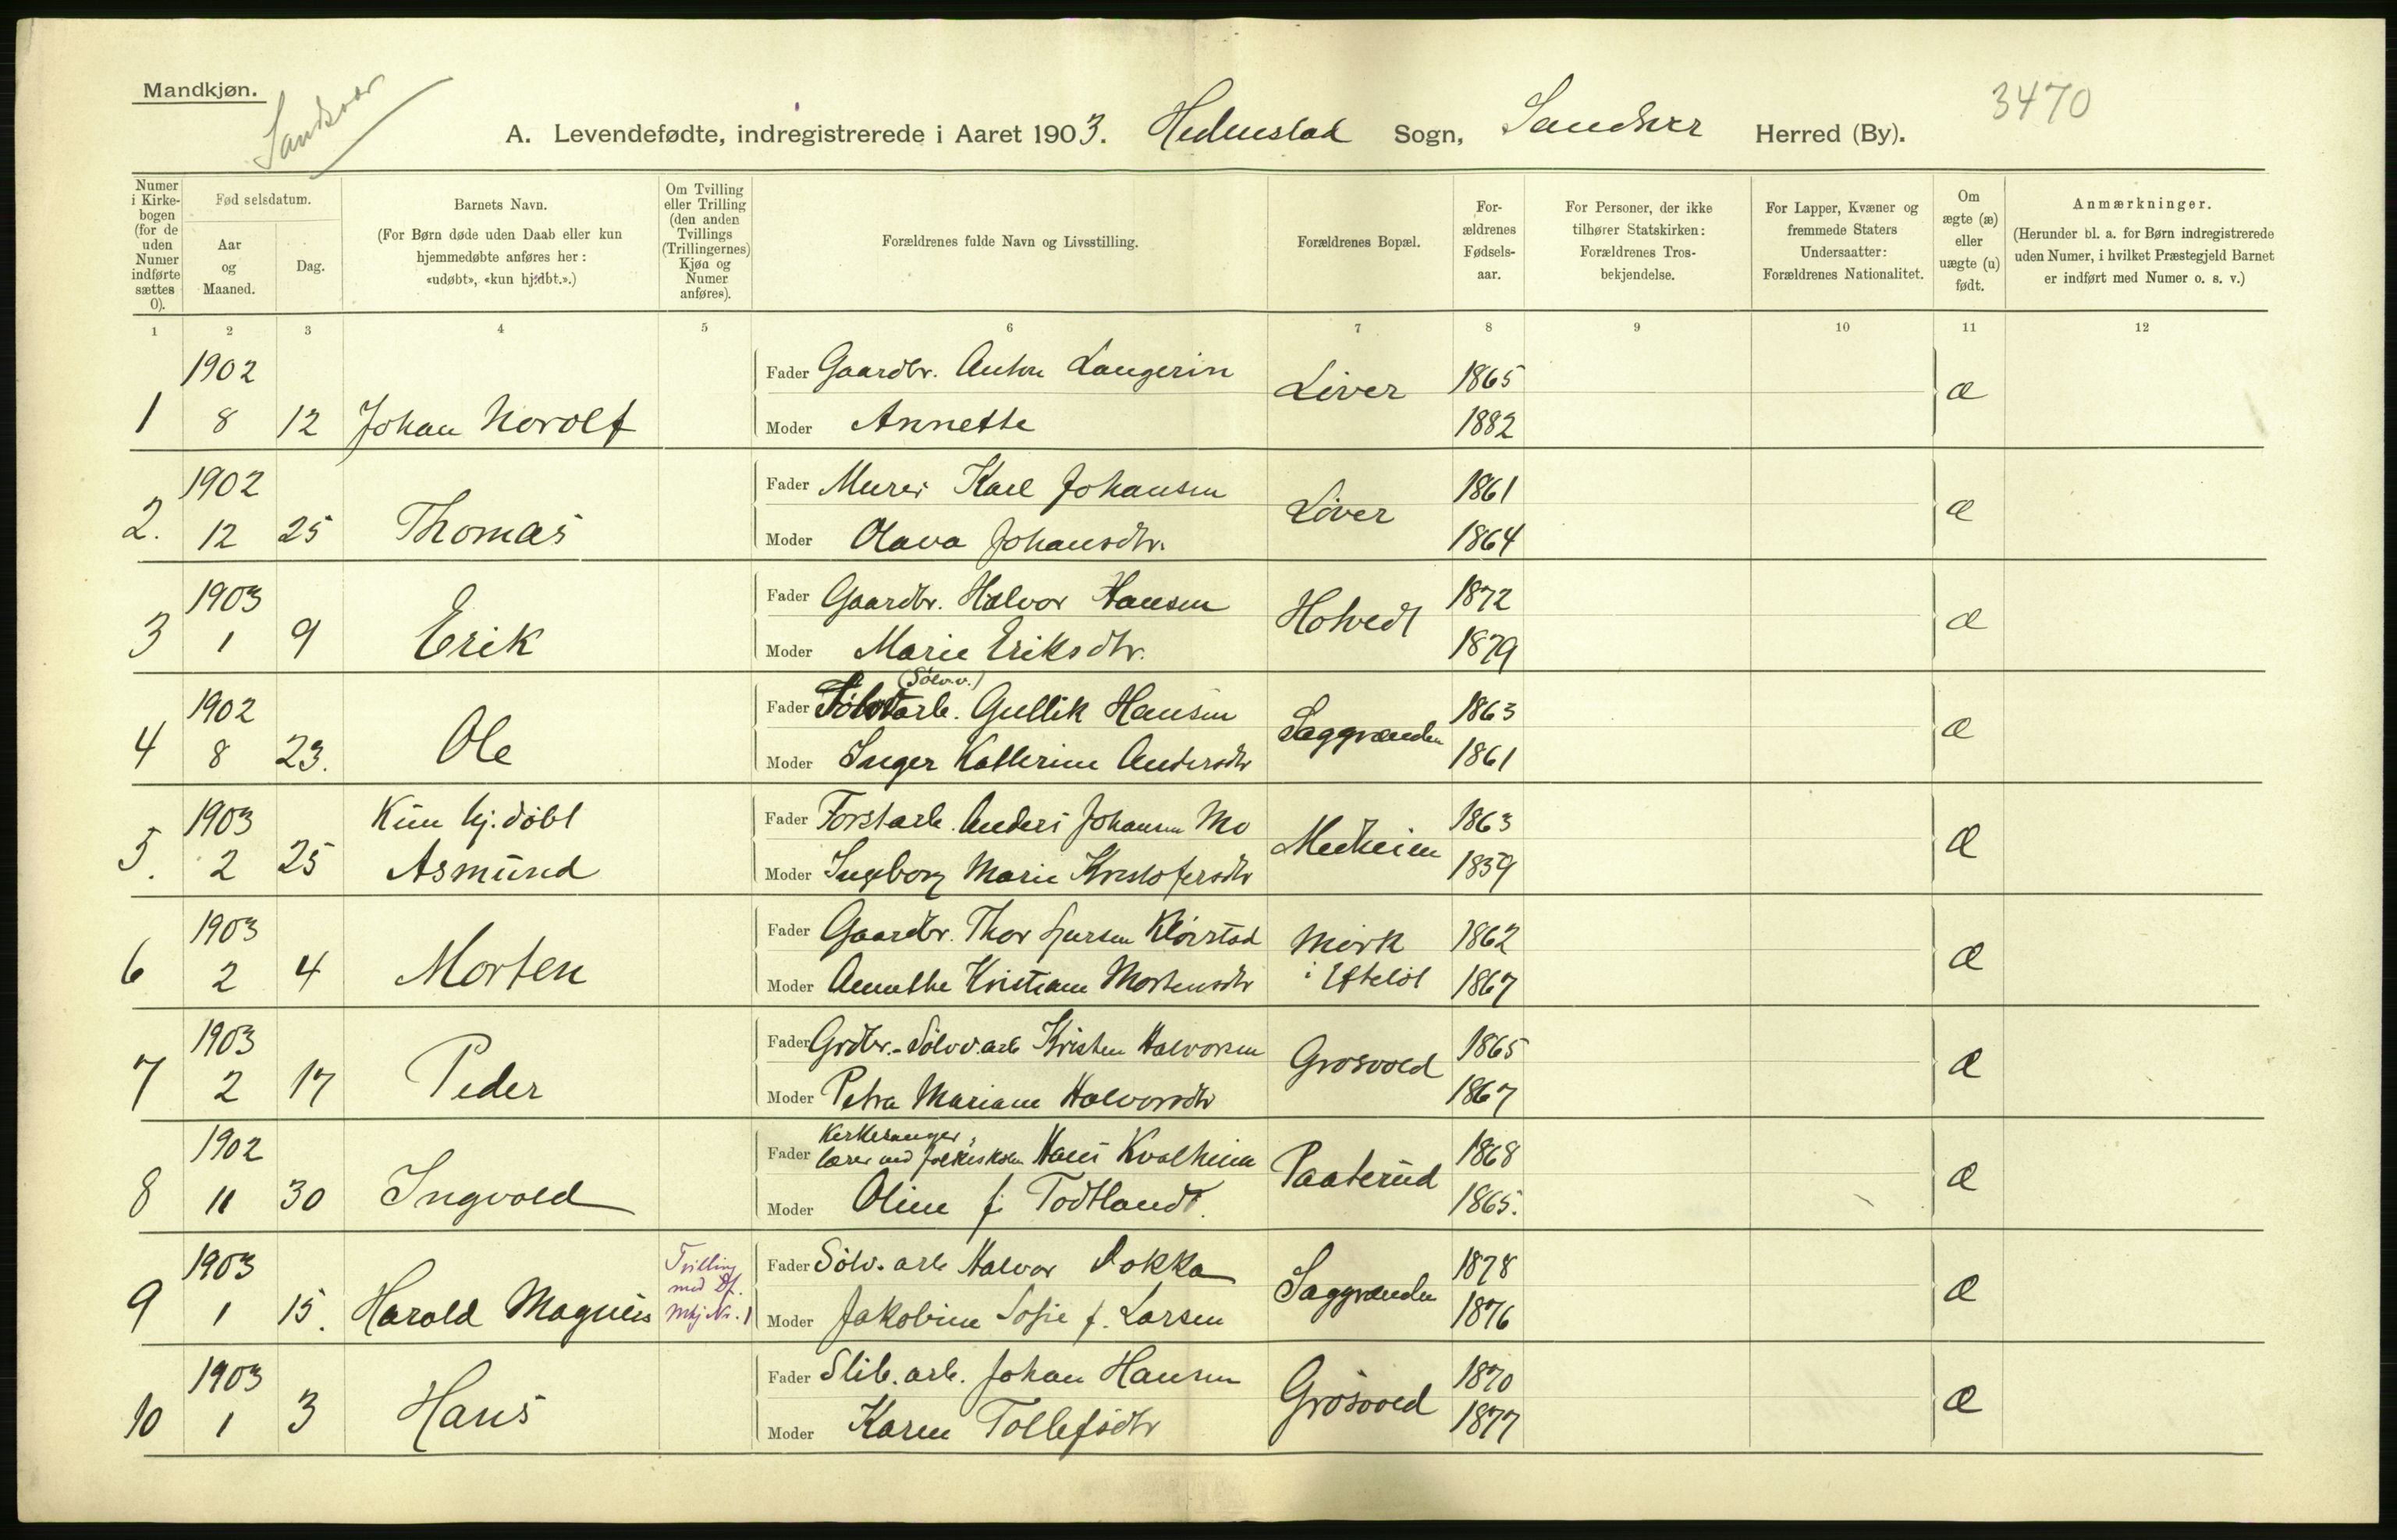 Mandkjøn.
Sandsvær
3470
A. Levendefødte, indregistrerede i Aaret 1903. Hedenstad Sogn, Sandsvær Herred (By).
Numer i Kirke-bogen (for de uden Numer indførte sættes 0).
Fødselsdatum.
Aar og Maaned.
Dag.
Barnets Navn.
(For Børn døde uden Daab eller kun hjemmedøbte anføres her: «udøbt», «kun hjdbt.».)
Om Tvilling eller Trilling (den anden Tvillings (Trillingernes) Kjøn og Numer anføres).
Forældrenes fulde Navn og Livsstilling.
Forældrenes Bopæl.
For-ældrenes Fødsels-aar.
For Personer, der ikke tilhører Statskirken: Forældrenes Tros-bekjendelse.
For Lapper, Kvæner og fremmede Staters Undersaatter: Forældrenes Nationalitet.
Om ægte (æ) eller uægte (u) født.
Anmærkninger.
(Herunder bl. a. for Børn indregistrerede uden Numer, i hvilket Præstegjeld Barnet er indført med Numer o. s. v.)
1 2 3 4 5 6 7 8 9 10 11 12
1902 Fader Gaardbr. Anton Langerin Liver 1865 æ
1 8 12 Johan Norolf Moder Annette 1882
1902 Fader Murer Karl Johansen Liver 1861 æ
2. 12 25 Thomas Moder Olava Johansdtr. 1864
1903 Fader Gaardbr. Halvor Hansen Hotvedt 1872 æ
3 1 9 Erik Moder Marie Eriksdtr. 1879
(Sølvv.)
1902 Fader arb. Gullik Hansen Saggrenden 1863 æ
4 8 23. Ole Moder Inger Kathrine Andersdtr 1861
1903 Kun hj. døbt Fader Forstarb. Anders Johansen Mo Medheim 1863 æ
5. 2 25 Asmund Moder Ingeborg Marie Kristofersdtr 1859
1903 Fader Gaardbr. Thor Gursen Kløvstad Mørk 1862 æ
6 2 4 Morten Moder Annethe Kristiane Mortensdtr i Efteløt 1867
1903 Fader Grdbr.-Sølvv.arb Kristen Halvorsen Grosvold 1865 æ
7 2 17 Peder Moder Petra Mariane Halvorsdtr 1867
Kirkesanger,
1902 Fader lærer ved folkeskolen Hans Kvalheim Paaterud 1868 æ
8 11 30 Ingvald Moder Oline f. Todtlandt. 1865.
1903 Tvilling med Df. Fader Sølv. arb Halvor Dokka Saggrenden 1878 æ
9 1 15. Harald Magnus Mkj Nr. 1 Moder Jakobine Sofie f. Larsen 1876
1903 Fader Slib. arb. Johan Hansen Grosvold 1870 æ
10 1 3 Hans Moder Karen Tollefsdtr 1877